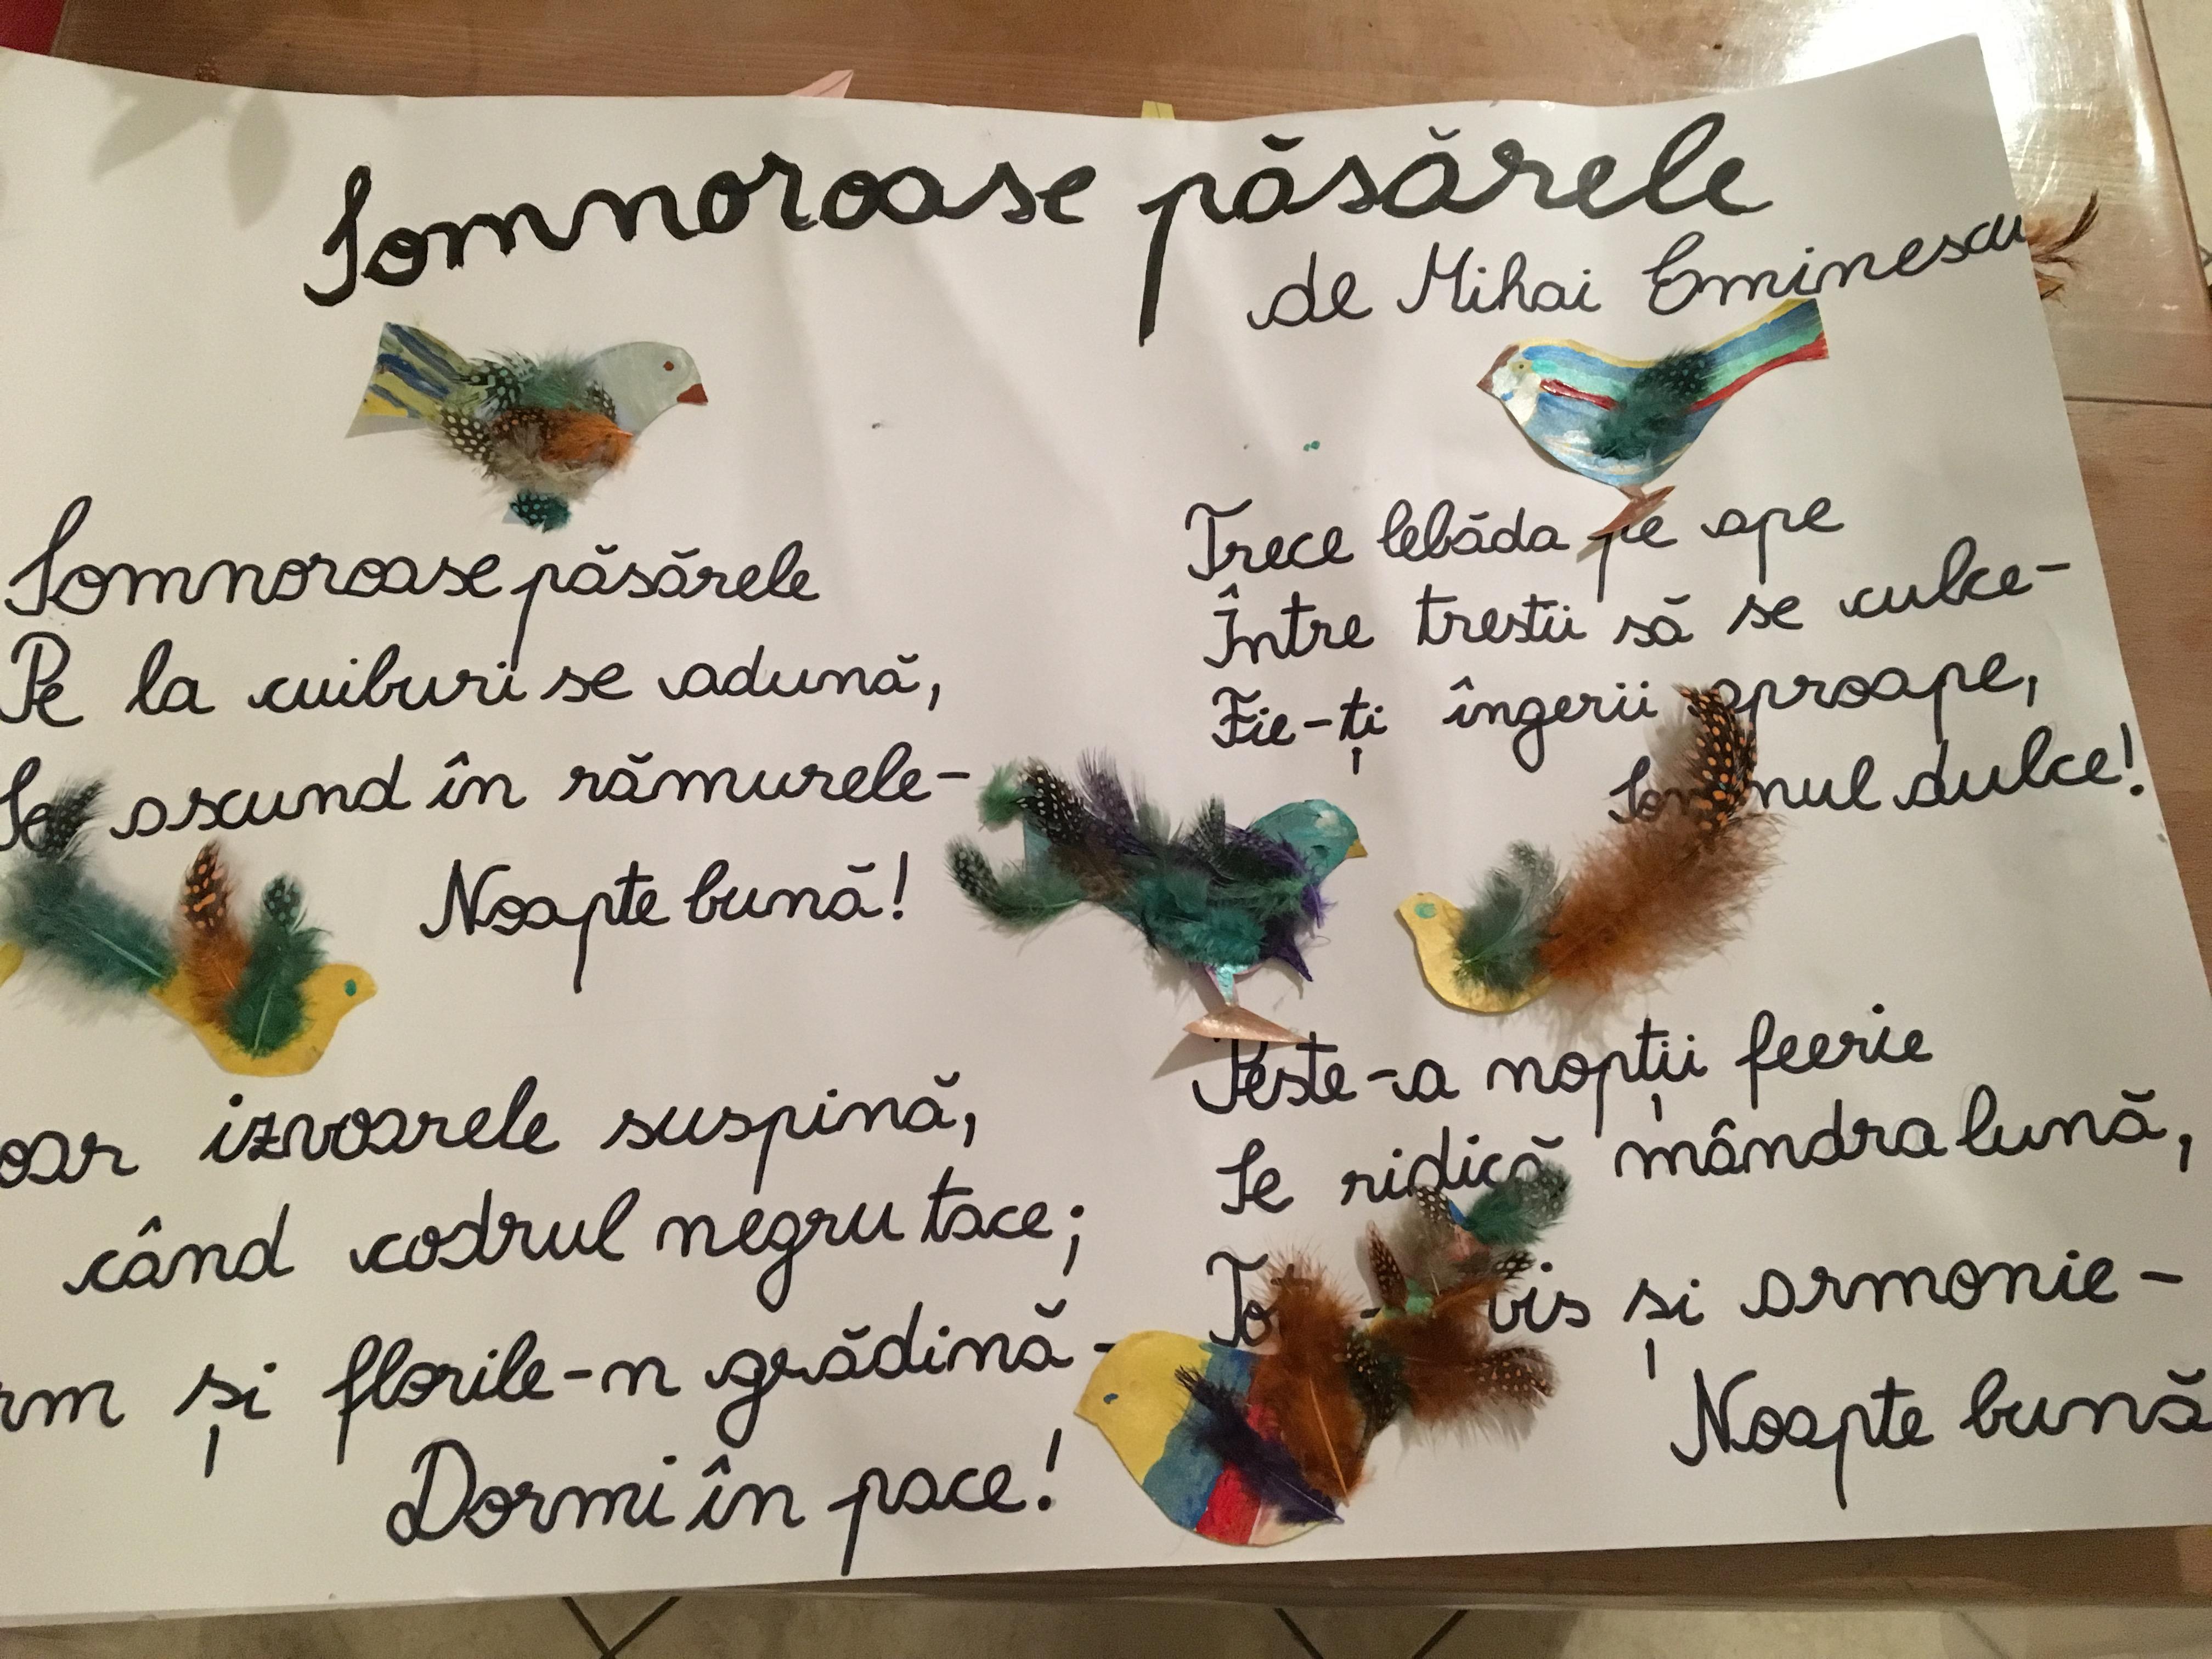 Somnoroase păsărele
de Mihai Eminescu
Somnoroase păsărele
Pe la cuiburi se adună,
Se ascund în rămurele-
Noapte bună!
oar izvoarele suspină,
când codrul negru tace;
rm și florile-n grădină-
Dormi în pace!
Trece lebăda pe ape
Între trestii să se culce-
Fie-ți îngerii aproape,
Somnul dulce!
Peste-a nopții feerie
Se ridică mândra lună,
vis și armonie-
Noapte bună